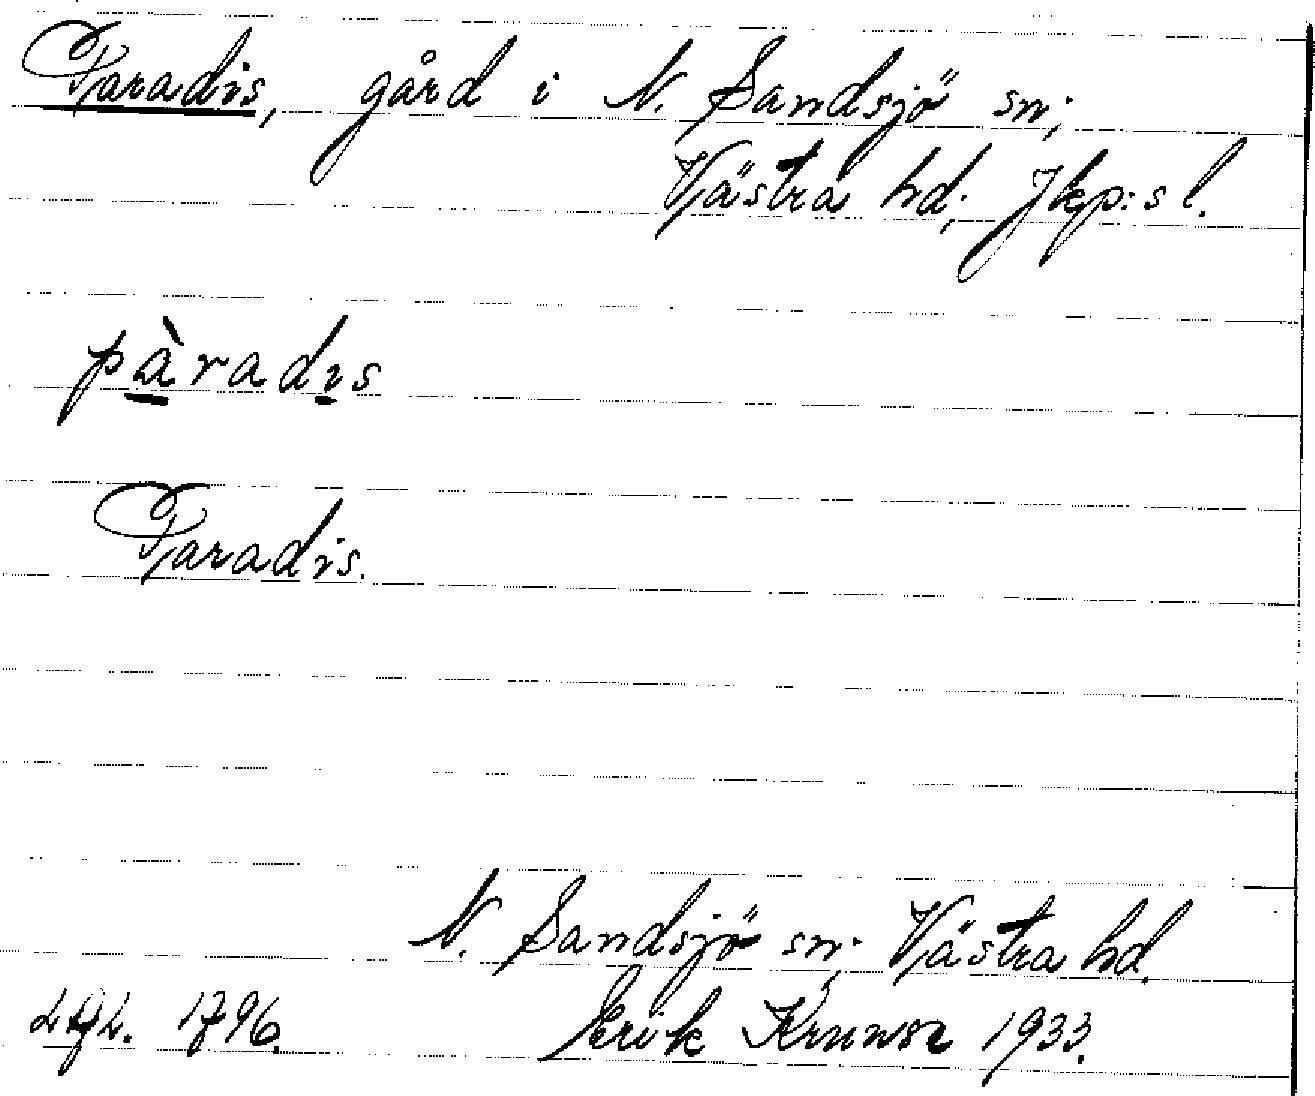 Paradis, gård i N. Sandsjö sn;
Västra hd; Jkp:s l.
pàradis
Paradis.
N. Sandsjö sn; Västra hd.
1796. Erik 1933.